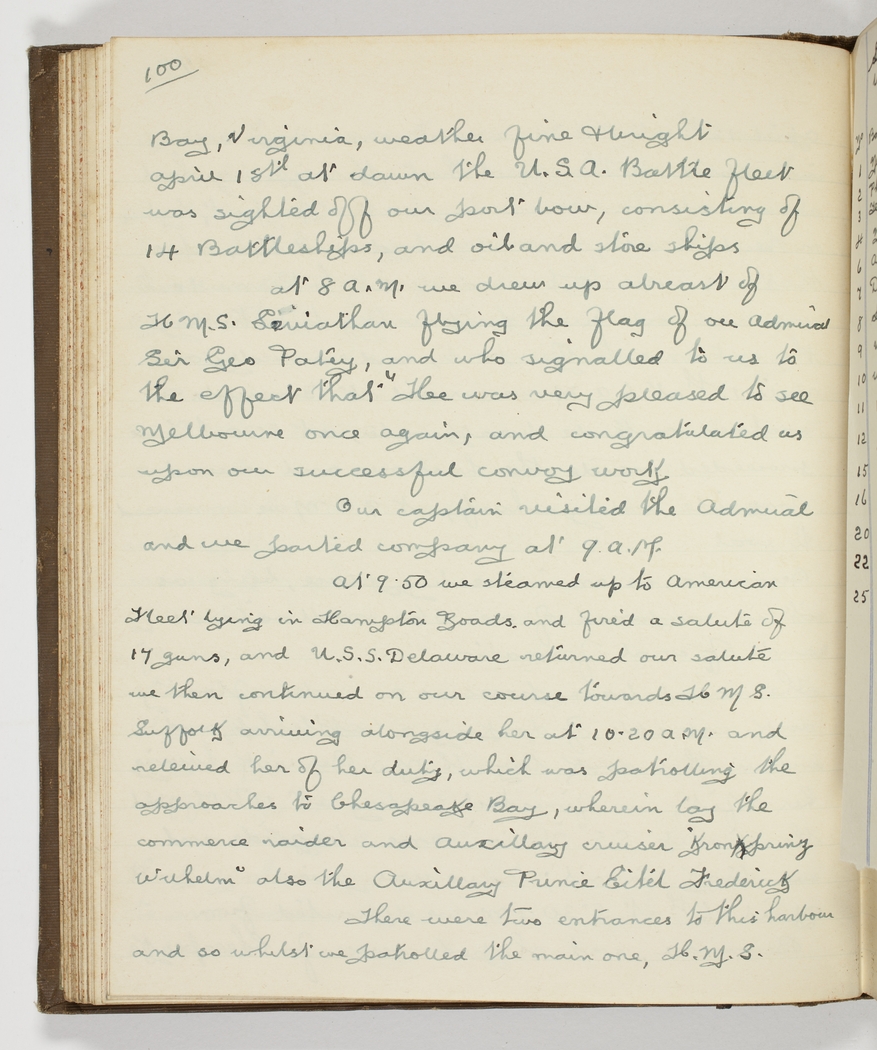 100
Bay, Virginia, weather fine & bright
april 18th at dawn the U.S.A. Battle fleet
was sighted off our port bow, consisting of
14 Battleships, and oil and store ships
at 8 A.M. we drew up abreast of
H M.S. Leviathan flying the flag of our Admiral
Sir Geo Patey, and who signalled to us to
the effect that "Hee was very pleased to see
Melbourne once again, and congratulated us
upon our successful convoy work
Our captain visited the Admiral
and we parted company at 9.A.M.
At 9.50 we steamed up to American
Fleet lying in Hampton Roads. and fired a salute of
17 guns, and U.S.S. Delaware returned our salute
we then continued on our course towards H M S.
Suffolk arriving alongside her at 10.20 a.M. and
releived her of her duty, which was patrolling the
approaches to Chesapeake Bay, wherein lay the
commerce raider and auxillary cruiser "Kronprinz
Wilhelm" also the Auxillary Prince Eitel Frederick
There were two entrances to this harbour
and so whilst we patrolled the main one, H.M.S.
1
2
3
4
6
7
8
9
10
11
12
15
16
20
22
25